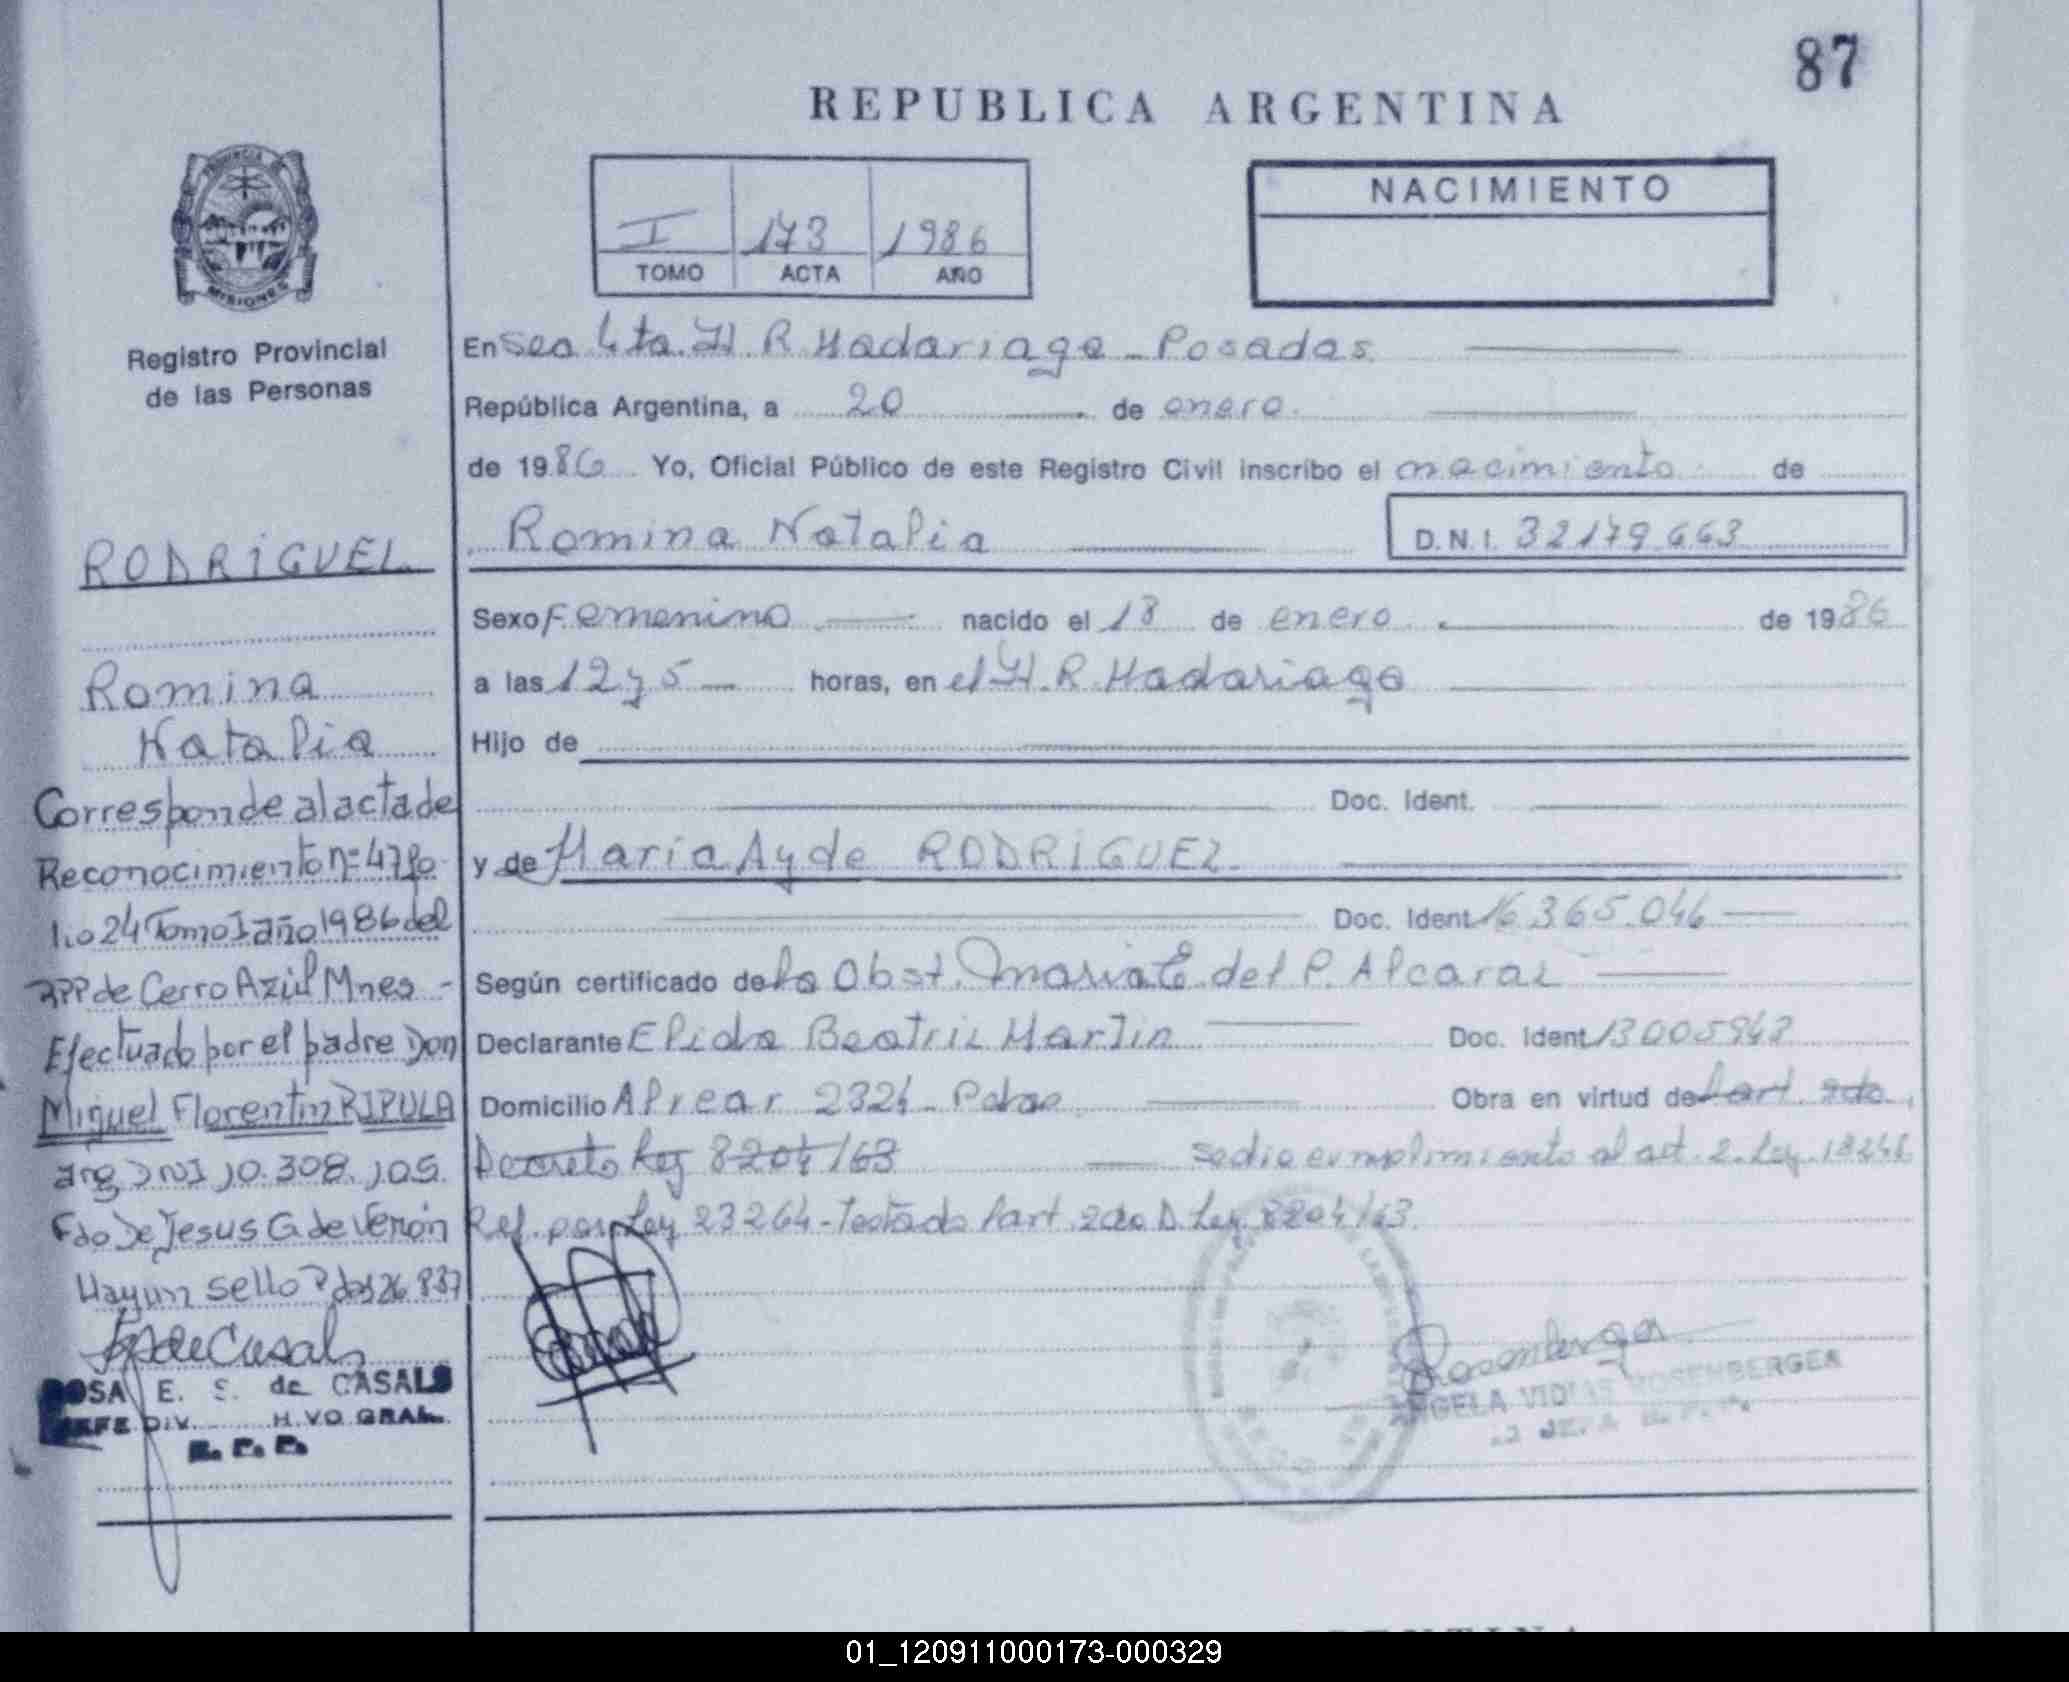 87
REPUBLICA ARGENTINA
PROVINCIA
MISIONES
Registro Provincial
de las Personas
I 173 1986
TOMO ACTA AÑO
NACIMIENTO
En Sec 4ta. H. R Madariaga - Posadas.
República Argentina, a 20 de enero.
de 1986 Yo, Oficial Público de este Registro Civil inscribo el nacimiento de
Romina Natalia
D.N.I. 32179643
Sexo Femenino nacido el 18 de enero de 1986
a las 12 y 5 horas, en el H. R. Madariaga
Hijo de
Doc. Ident.
y de Maria Ayde RODRIGUEZ.
Doc. Ident. 16365.046
Según certificado de la Obst. Maria E. del P. Alcaraz
Declarante Elida Beatriz Martin Doc. Ident. 13005943
Domicilio Alvear 2324 - Pdas Obra en virtud de l'art. 2do.
Decreto Ley 8204/63 se dio cumplimiento al art. 2. Ley. 18248
Ref. por Ley 23264 - Testado l'art. 2do D. Ley 8204/63.
RODRIGUEZ
Romina
Natalia
Corresponde al acta de
Reconocimiento nº 47 fo
lio 24 Tomo I año 1986 del
RPP de Cerro Azul Mnes -
Efectuado por el padre Don
Miguel Florentin RIPULA
arg DNI 10.308.105.
Fdo De Jesus G de Verón
Hay un sello Pdas 26 8 37
de Casals
ROSA E. S. de CASALS
JEFE DIV. H. VO GRAL.
R. P. P.
Rosemberger
ANGELA VIDMAS ROSEMBERGER
01_120911000173-000329